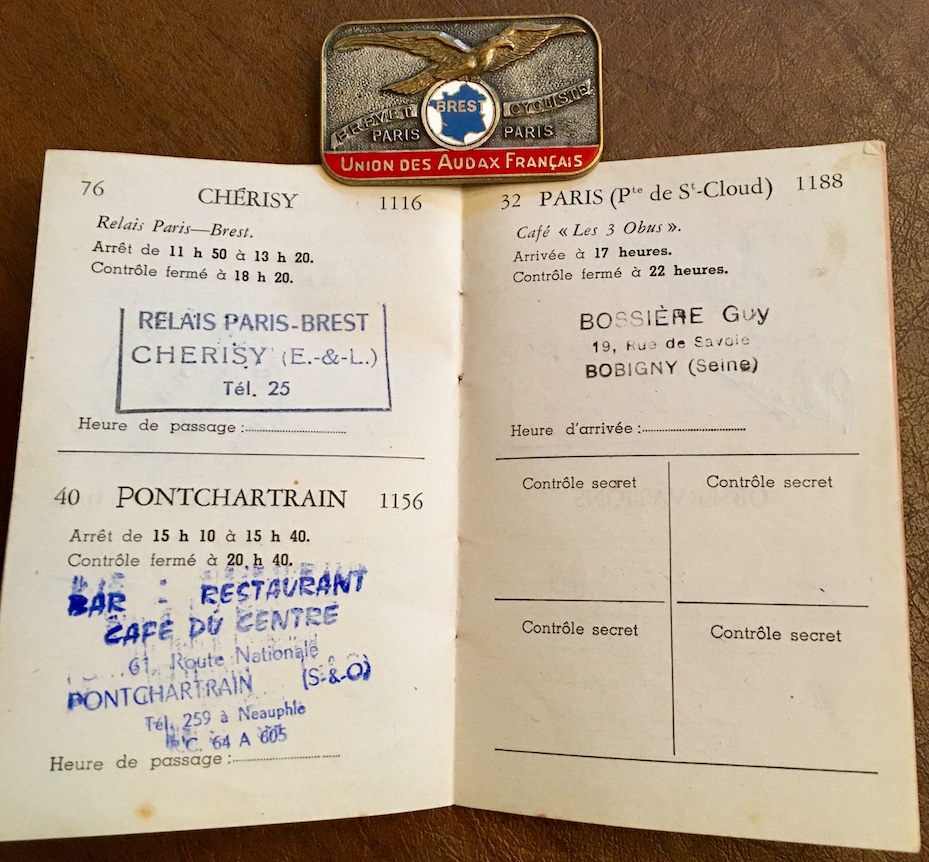 BREVET CYCLISTE
PARIS BREST PARIS
UNION DES AUDAX FRANÇAIS
76 CHÉRISY 1116
Relais Paris—Brest.
Arrêt de 11 h 50 à 13 h 20.
Contrôle fermé à 18 h 20.
RELAIS PARIS-BREST
CHERISY (E.-&-L.)
Tél. 25
Heure de passage :
40 PONTCHARTRAIN 1156
Arrêt de 15 h 10 à 15 h 40.
Contrôle fermé à 20 h 40.
BAR - RESTAURANT
CAFÉ DU CENTRE
61, Route Nationale
PONTCHARTRAIN (S-&-O)
Tél. 259 à Neauphle
R.C. 64 A 605
Heure de passage :
32 PARIS (Pte de St-Cloud) 1188
Café « Les 3 Obus ».
Arrivée à 17 heures.
Contrôle fermé à 22 heures.
BOSSIÈRE Guy
19, Rue de Savoie
BOBIGNY (Seine)
Heure d'arrivée :
Contrôle secret
Contrôle secret
Contrôle secret
Contrôle secret